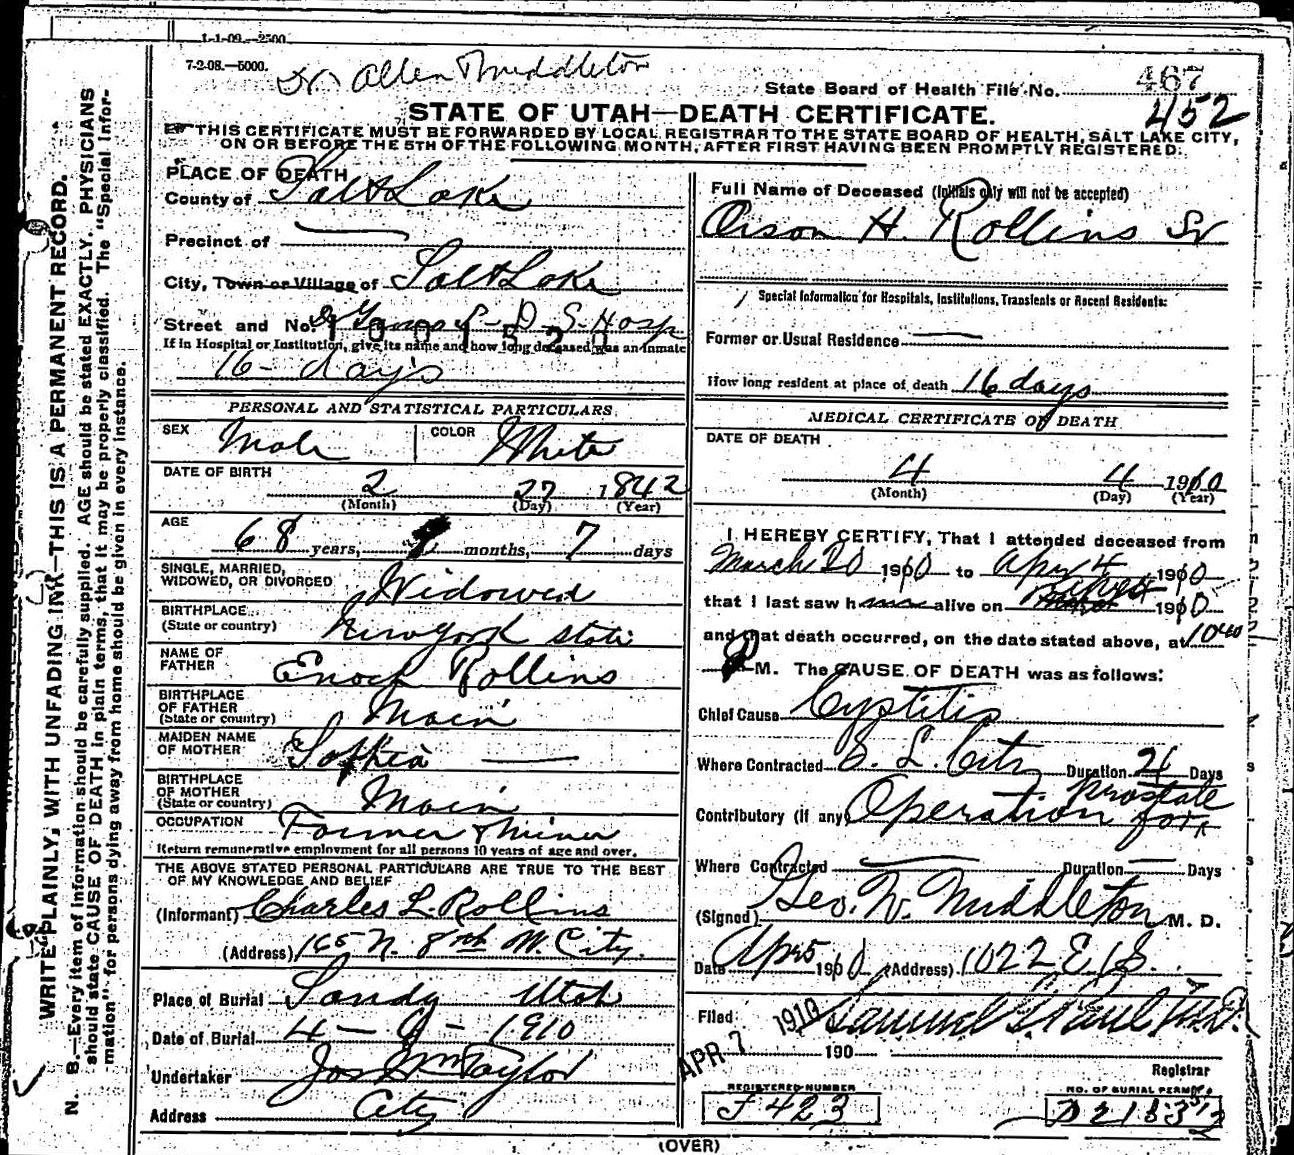 1-1-09.—2500
7-2-08.—5000.
Dr. Allen Middleton
State Board of Health File No. 467
452
STATE OF UTAH—DEATH CERTIFICATE.
THIS CERTIFICATE MUST BE FORWARDED BY LOCAL REGISTRAR TO THE STATE BOARD OF HEALTH, SALT LAKE CITY,
ON OR BEFORE THE 5TH OF THE FOLLOWING MONTH, AFTER FIRST HAVING BEEN PROMPTLY REGISTERED.
WRITE PLAINLY, WITH UNFADING INK—THIS IS A PERMANENT RECORD.
N. B.—Every item of information should be carefully supplied. AGE should be stated EXACTLY. PHYSICIANS
should state CAUSE OF DEATH in plain terms, that it may be properly classified. The "Special Infor-
mation" for persons dying away from home should be given in every instance.
PLACE OF DEATH
County of Salt Lake
Precinct of —
City, Town or Village of Salt Lake
Street and No. L. D. S. Hosp
If in Hospital or Institution, give its name and how long deceased was an inmate
16- days
PERSONAL AND STATISTICAL PARTICULARS
SEX Male COLOR White
DATE OF BIRTH
2 27 1842
(Month) (Day) (Year)
AGE
68 years, 1 months, 7 days
SINGLE, MARRIED,
WIDOWED, OR DIVORCED Widowed
BIRTHPLACE
(State or country) New York state
NAME OF
FATHER Enoch Rollins
BIRTHPLACE
OF FATHER
(State or country) Main
MAIDEN NAME
OF MOTHER Sophia —
BIRTHPLACE
OF MOTHER
(State or country) Main
OCCUPATION Farmer & Miner
Return remunerative employment for all persons 10 years of age and over.
THE ABOVE STATED PERSONAL PARTICULARS ARE TRUE TO THE BEST
OF MY KNOWLEDGE AND BELIEF
(Informant) Charles L. Rollins
(Address) 165 N. 8th W. City.
Place of Burial Sandy Utah
Date of Burial 4 - 9 - 1910
Undertaker Jos Wm Taylor
Address City
Full Name of Deceased (Initials only will not be accepted)
Orson H. Rollins Sr
Special Information for Hospitals, Institutions, Transients or Recent Residents:
Former or Usual Residence —
How long resident at place of death 16 days
MEDICAL CERTIFICATE OF DEATH
DATE OF DEATH
4 4 1910
(Month) (Day) (Year)
I HEREBY CERTIFY, That I attended deceased from
March 20 1910 to Apr 4 1910
that I last saw h alive on 1910
and that death occurred, on the date stated above, at 10 40
P M. The CAUSE OF DEATH was as follows:
Chief Cause Cystitis
Where Contracted S. L. City Duration 21 Days
Contributory (if any) Operation for prostate
Where Contracted — Duration — Days
(Signed) Geo. W. Middleton M. D.
Date Apr 5 1910 (Address) 1022 E. 1 S.
Filed APR 7 1910 Samuel G Paul M.D.
190
Registrar
REGISTERED NUMBER
J 423
NO. OF BURIAL PERMIT
(OVER)